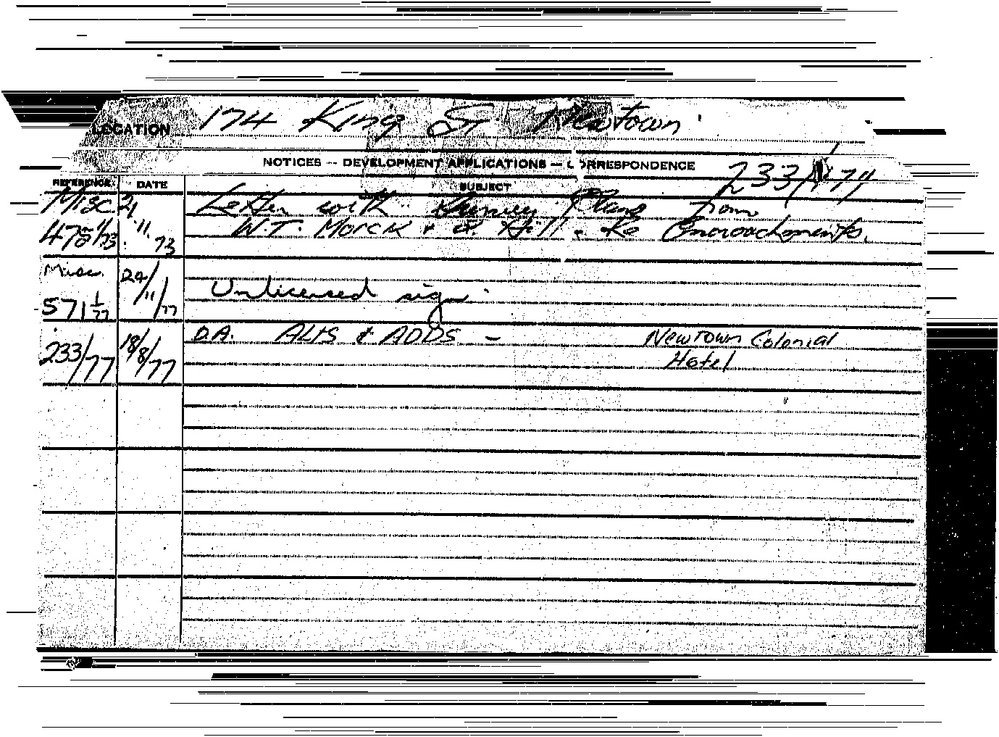 LOCATION 174 King St Newtown
NOTICES — DEVELOPMENT APPLICATIONS — CORRESPONDENCE 233/77
REFERENCE DATE SUBJECT
Misc 21 Letter with Survey Plans from
11 73 W.T. & Hill - Re Encroachments.
Misc. 24/11/77
571 1/77 Unlicensed sign
233/77 18/8/77 D.A. ALTS & ADDS — Newtown Colonial
Hotel